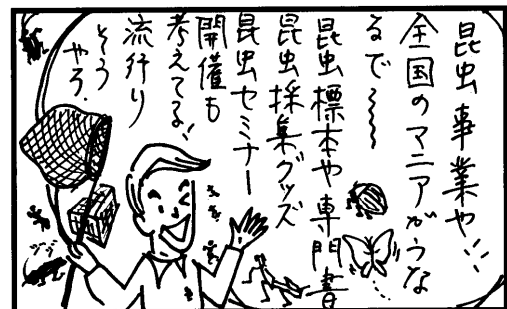 昆虫事業や!!
全国のマニアがうな
るで〜〜
昆虫標本や専門書
昆虫採集グッズ
昆虫セミナー
開催も
考えてる!
流行り
そう
やろ.
ジジジ